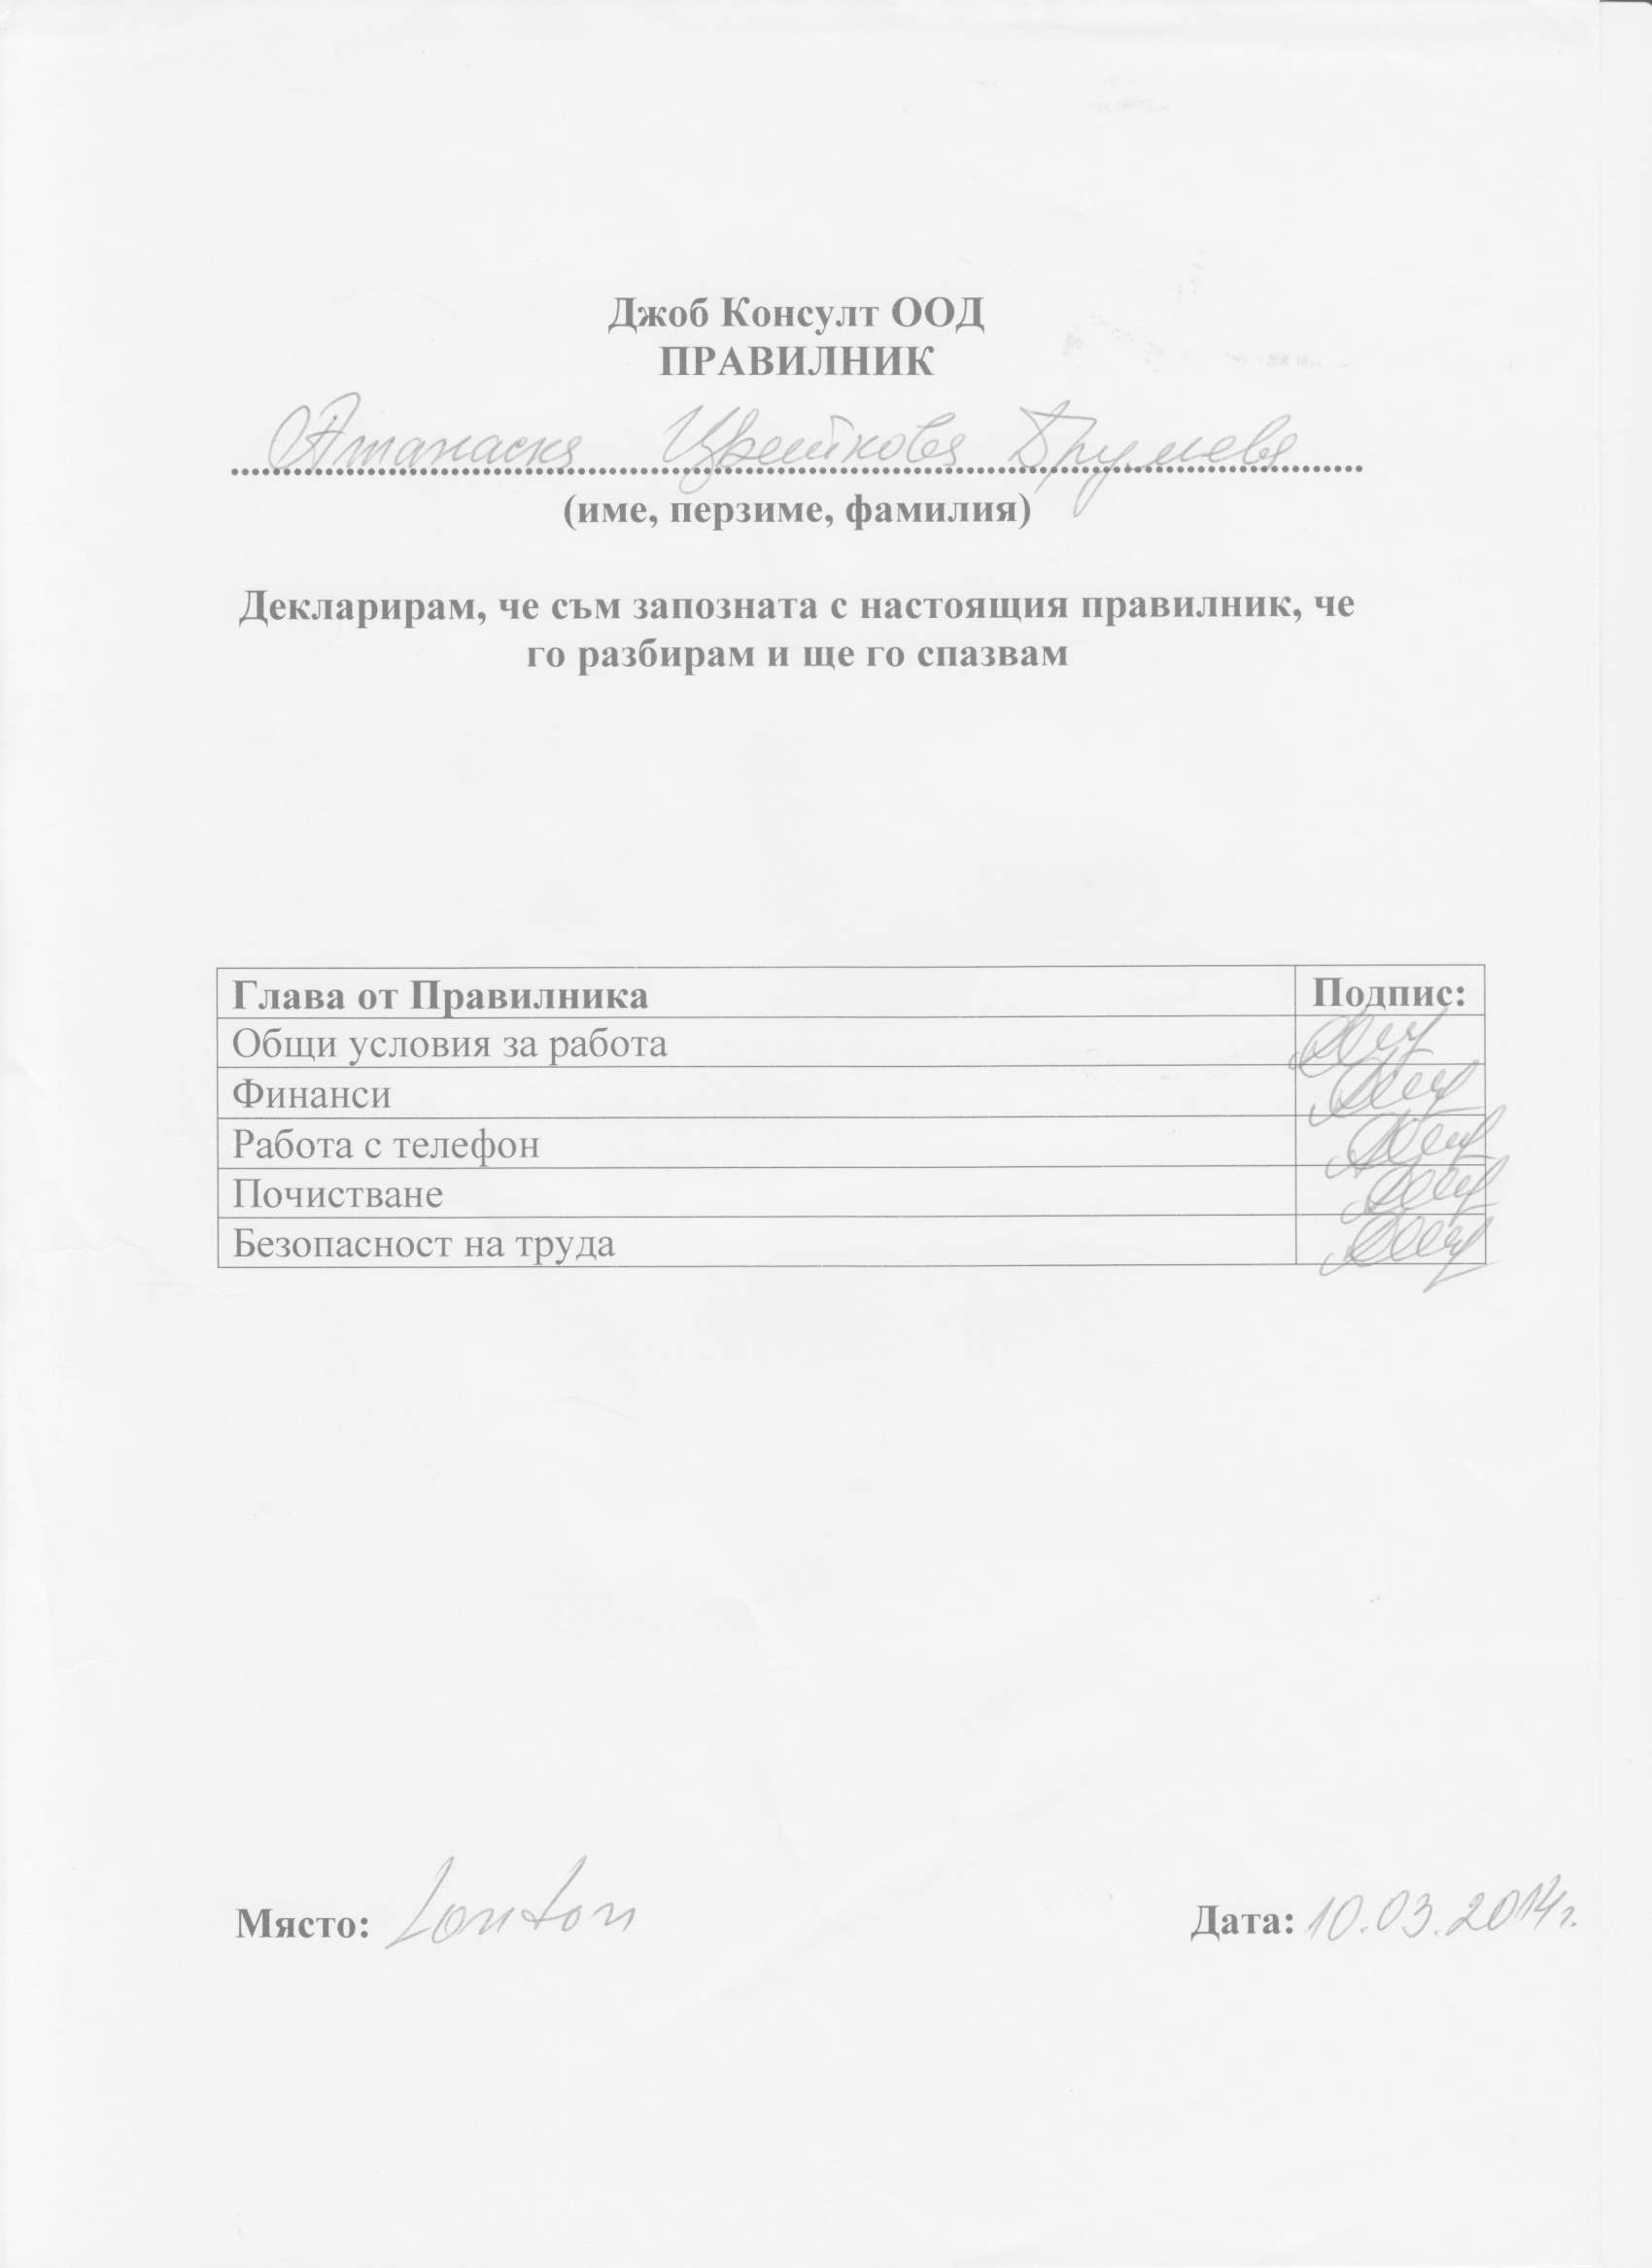 Джоб Консулт ООД
ПРАВИЛНИК
Атанаска Цветкова Друмева
(име, перзиме, фамилия)
Декларирам, че съм запозната с настоящия правилник, че
го разбирам и ще го спазвам
Глава от Правилника Подпис:
Общи условия за работа
Финанси
Работа с телефон
Почистване
Безопасност на труда
Място: London Дата: 10.03.2014г.